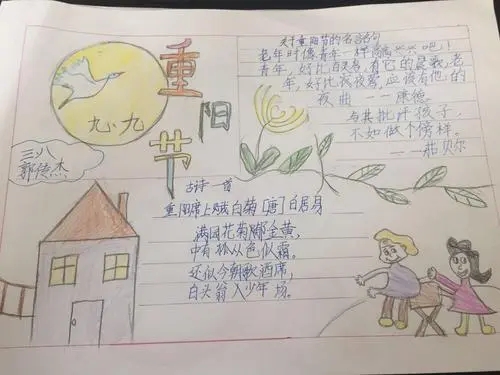 重阳节
九.九
三八
郭传杰
关于重阳节的名言名句
老年时像青年一样高高兴兴吧！
青年，好比百灵鸟，有它的晨歌，老
年，好比夜莺，应该有他的
夜曲——康德
与其批评孩子，
不如做个榜样。
——茹贝尔
古诗一首
重阳席上赋白菊 [唐] 白居易
满园花菊郁金黄，
中有孤丛色似霜。
还似今朝歌酒席，
白头翁入少年场。